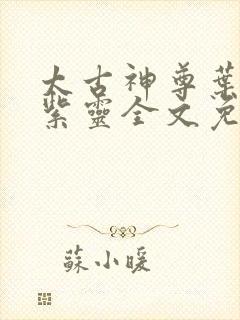 太古神尊葉
紫靈全文免
蘇小暖